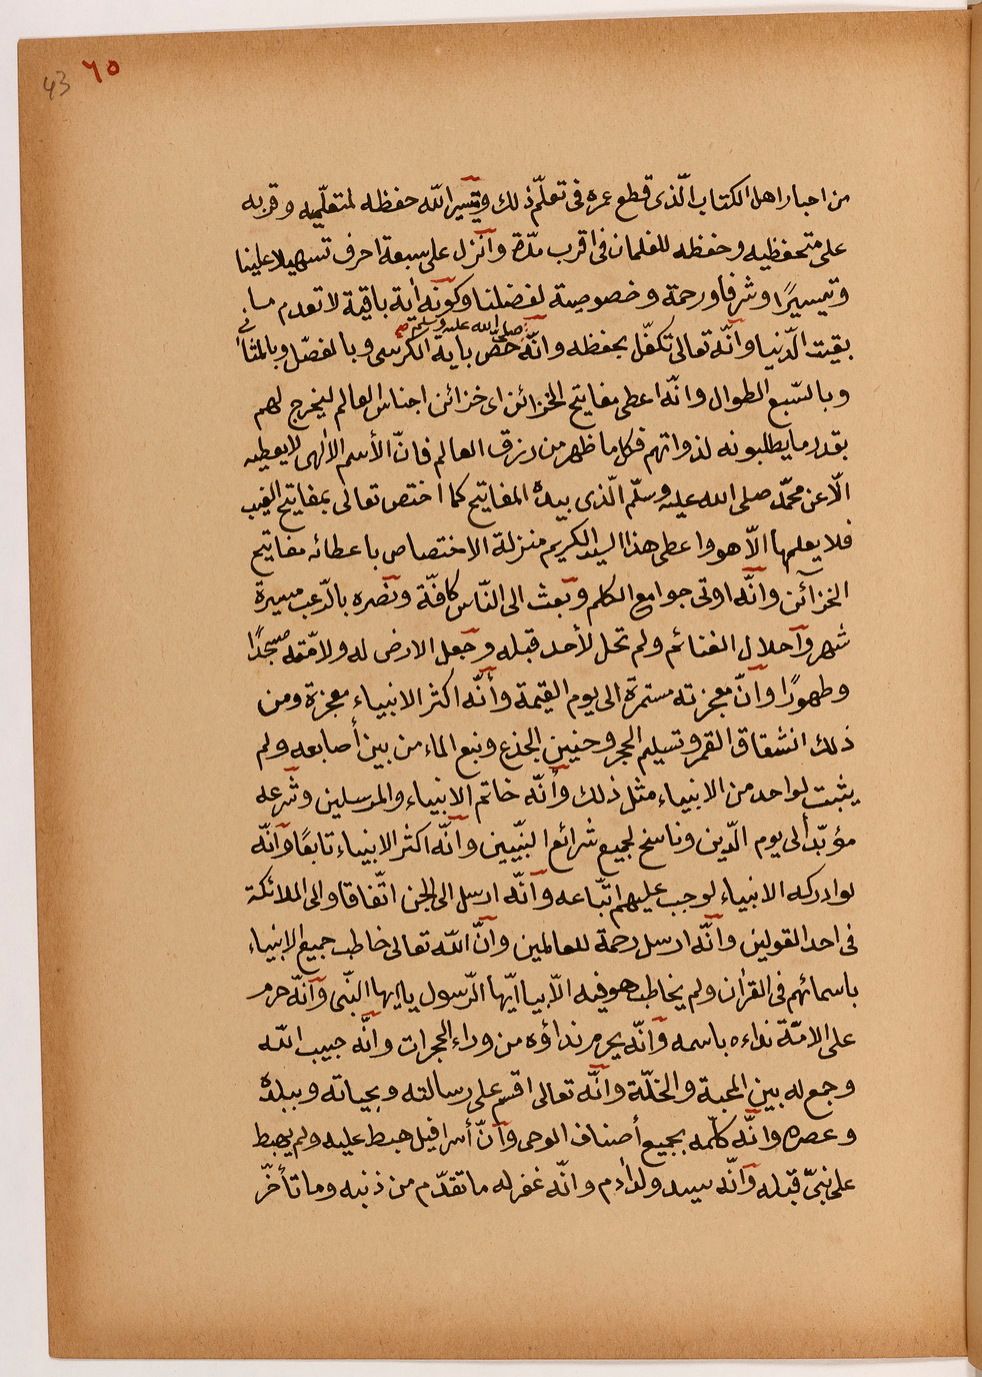 43 ٦٥
من احبار اهل الكتاب الّذى قطع عمره فى تعلّم ذلك وتيسير اللّه حفظه لمتعلّميه وقربه
على متحفظيه وحفظه للغلمان فى اقرب مدّة وانزل على سبعة احرف تسهيلا علينا
وتيسيرًا وشرفا ورحمة وخصوصية لفضلنا وكونه أية باقية لا تعدم ما
صلى الله عليه وسلم صح
بقيت الدّنيا وانّه تعالى تكفّل بحفظه وانّه خصّ باية الكرسى وبالمفصّل وبالمثانى
وبالسّبع الطوال وانّه اعطى مفاتيح الخزائن اى خزائن اجناس العالم ليخرج لهم
بقدر ما يطلبونه لذواتهم فكل ما ظهر من رزق العالم فانّ الأسم الالٰهى لا يعطيه
الّا عن محمّد صلى الله عليه وسلّم الّذى بيده المفاتيح كما اختص تعالى بمفاتيح الغيب
فلا يعلمها الّا هو واعطى هذا السيد الكريم منزلة الاختصاص باعطائه مفاتيح
الخزآئن وانّه اوتى جوامع الكلم وبعث الى النّاس كافّة ونصره بالرّعب مسيرة
شهر وآحلال الغنائم ولم تحل لأحد قبله وجعل الارض له ولامّته مسجدًا
وطهورًا وانّ معجزته مستمرة الى يوم القيمة وأنّه اكثر الانبياء معجزة ومن
ذلك انشقاق القمر وتسليم الحجر وحنين الجذع ونبع الماء من بين أصابعه ولم
يثبت لواحد من الانبياء مثل ذلك وأنّه خاتم الانبياء والمرسلين وشرعه
مؤبّد ألى يوم الدّين وناسخ لجميع شرائع النبّيين وانّه اكثر الانبياء تابعًا وانّه
لو ادركه الانبياء لوجب عليهم اتّباعه وانّه ارسل الى الجن اتّفاقا والى الملائكة
فى احد القولين وانّه ارسل رحمة للعالمين وانّ اللّه تعالى خاطب جميع الانبياء
باسمائهم فى القرأن ولم يخاطب هو فيه الّا بيا ايّها الرّسول يا ايها النّبى وآنّه حرم
على الامّة نداءه باسمه وآنّه يحرم نداؤه من وراء الحجرات وانّه حبيب اللّه
وجمع له بين المحبة والخلّة وانّه تعالى اقسم على رسالته وبحياته وببلده
وعصره وانّه كلّمه بجميع أصناف الوحى وآنّ أسرافيل هبط عليه ولم يهبط
على نبىّ قبله وآنّه سيد ولد أدم وانّه غفر له ما تقدّم من ذنبه وما تأخّر